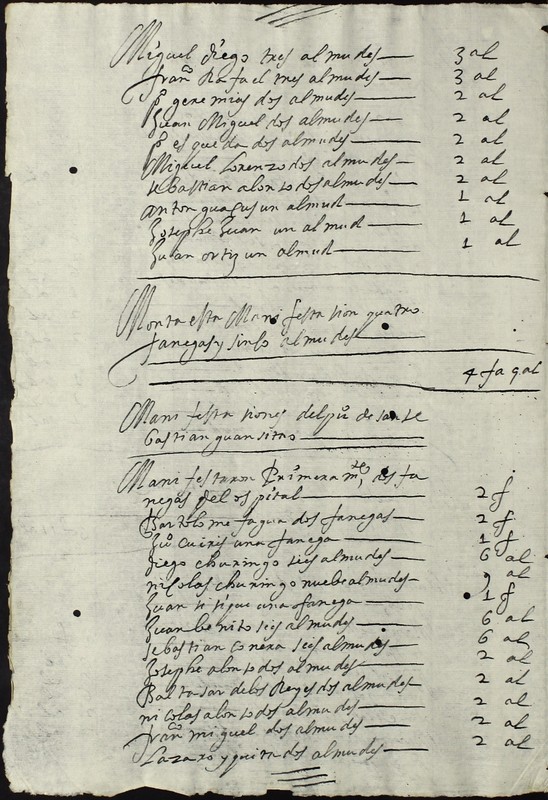 Miguel diego tres almudes 3 al
fran.co Rafael tres almudes 3 al
p.o geremias dos almudes 2 al
Juan Miguel dos almudes 2 al
p.o esqueda dos almudes 2 al
Miguel Lorenzo dos almudes 2 al
sebastian alonso dos almudes 2 al
anton guacus un almud 1 al
Josephe Juan un almud 1 al
Juan ortiz un almud 1 al
Monta esta Manifestasion quatro
fanegas y sinco almudes
4 fa 9 al
Manifestasiones del pu.o de san se
bastian guansitas
Manifestaron Primeram.te dos fa
negas del ospital 2 f
Bartolome fagua dos fanegas 2 f
Ju.o Cuiris una fanega 1 f
diego churingo seis almudes 6 al
nicolas churingo nuebe almudes 9 al
Juan una fanega 1 f
Juan benito seis almudes 6 al
sebastian Conexa seis almudes 6 al
Josephe alonso dos almudes 2 al
Baltasar de los Reyes dos almudes 2 al
nicolas alonso dos almudes 2 al
fran.co miguel dos almudes 2 al
Lazaro yquira dos almudes 2 al